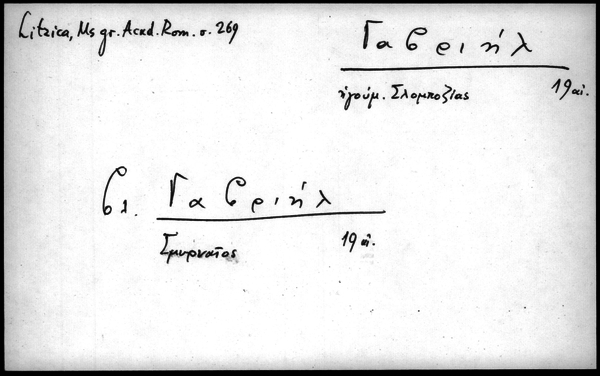 Litzica, Ms gr. Acad. Rom. σ. 269
Γαβριήλ
ἡγούμ. Σλομποζίας 19 αἰ.
βλ. Γαβριήλ
Σμυρναῖος 19 αἰ.